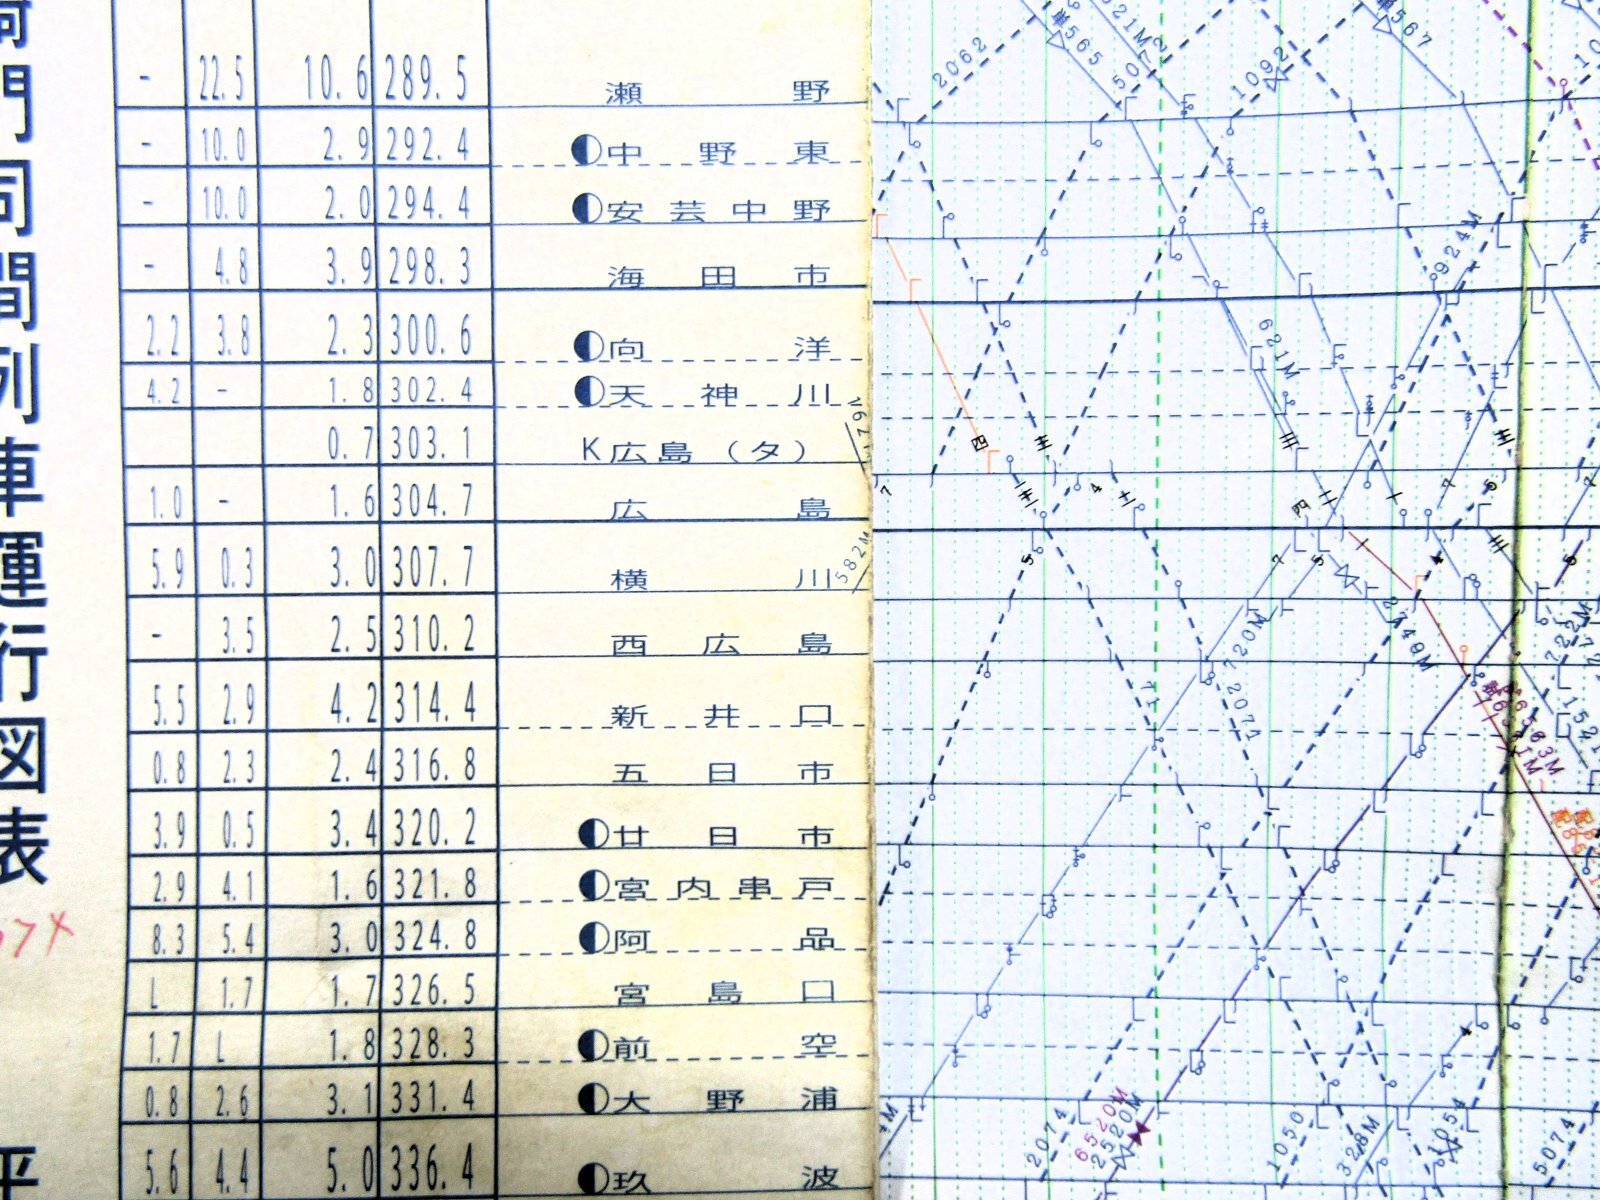 門司間列車運行図表
- 22.5 10.6 289.5 瀬野
- 10.0 2.9 292.4 中野東
- 10.0 2.0 294.4 安芸中野
- 4.8 3.9 298.3 海田市
2.2 3.8 2.3 300.6 向洋
4.2 - 1.8 302.4 天神川
0.7 303.1 K広島(タ)
1.0 - 1.6 304.7 広島
5.9 0.3 3.0 307.7 横川
- 3.5 2.5 310.2 西広島
5.5 2.9 4.2 314.4 新井口
0.8 2.3 2.4 316.8 五日市
3.9 0.5 3.4 320.2 廿日市
2.9 4.1 1.6 321.8 宮内串戸
8.3 5.4 3.0 324.8 阿品
L 1.7 1.7 326.5 宮島口
1.7 L 1.8 328.3 前空
0.8 2.6 3.1 331.4 大野浦
5.6 4.4 5.0 336.4 玖波
2062
565
621M
1092
567
924M
621M
582M
720M
2071
2749M
722M
2074
6520M
2520M
1050
328M
1054
5074